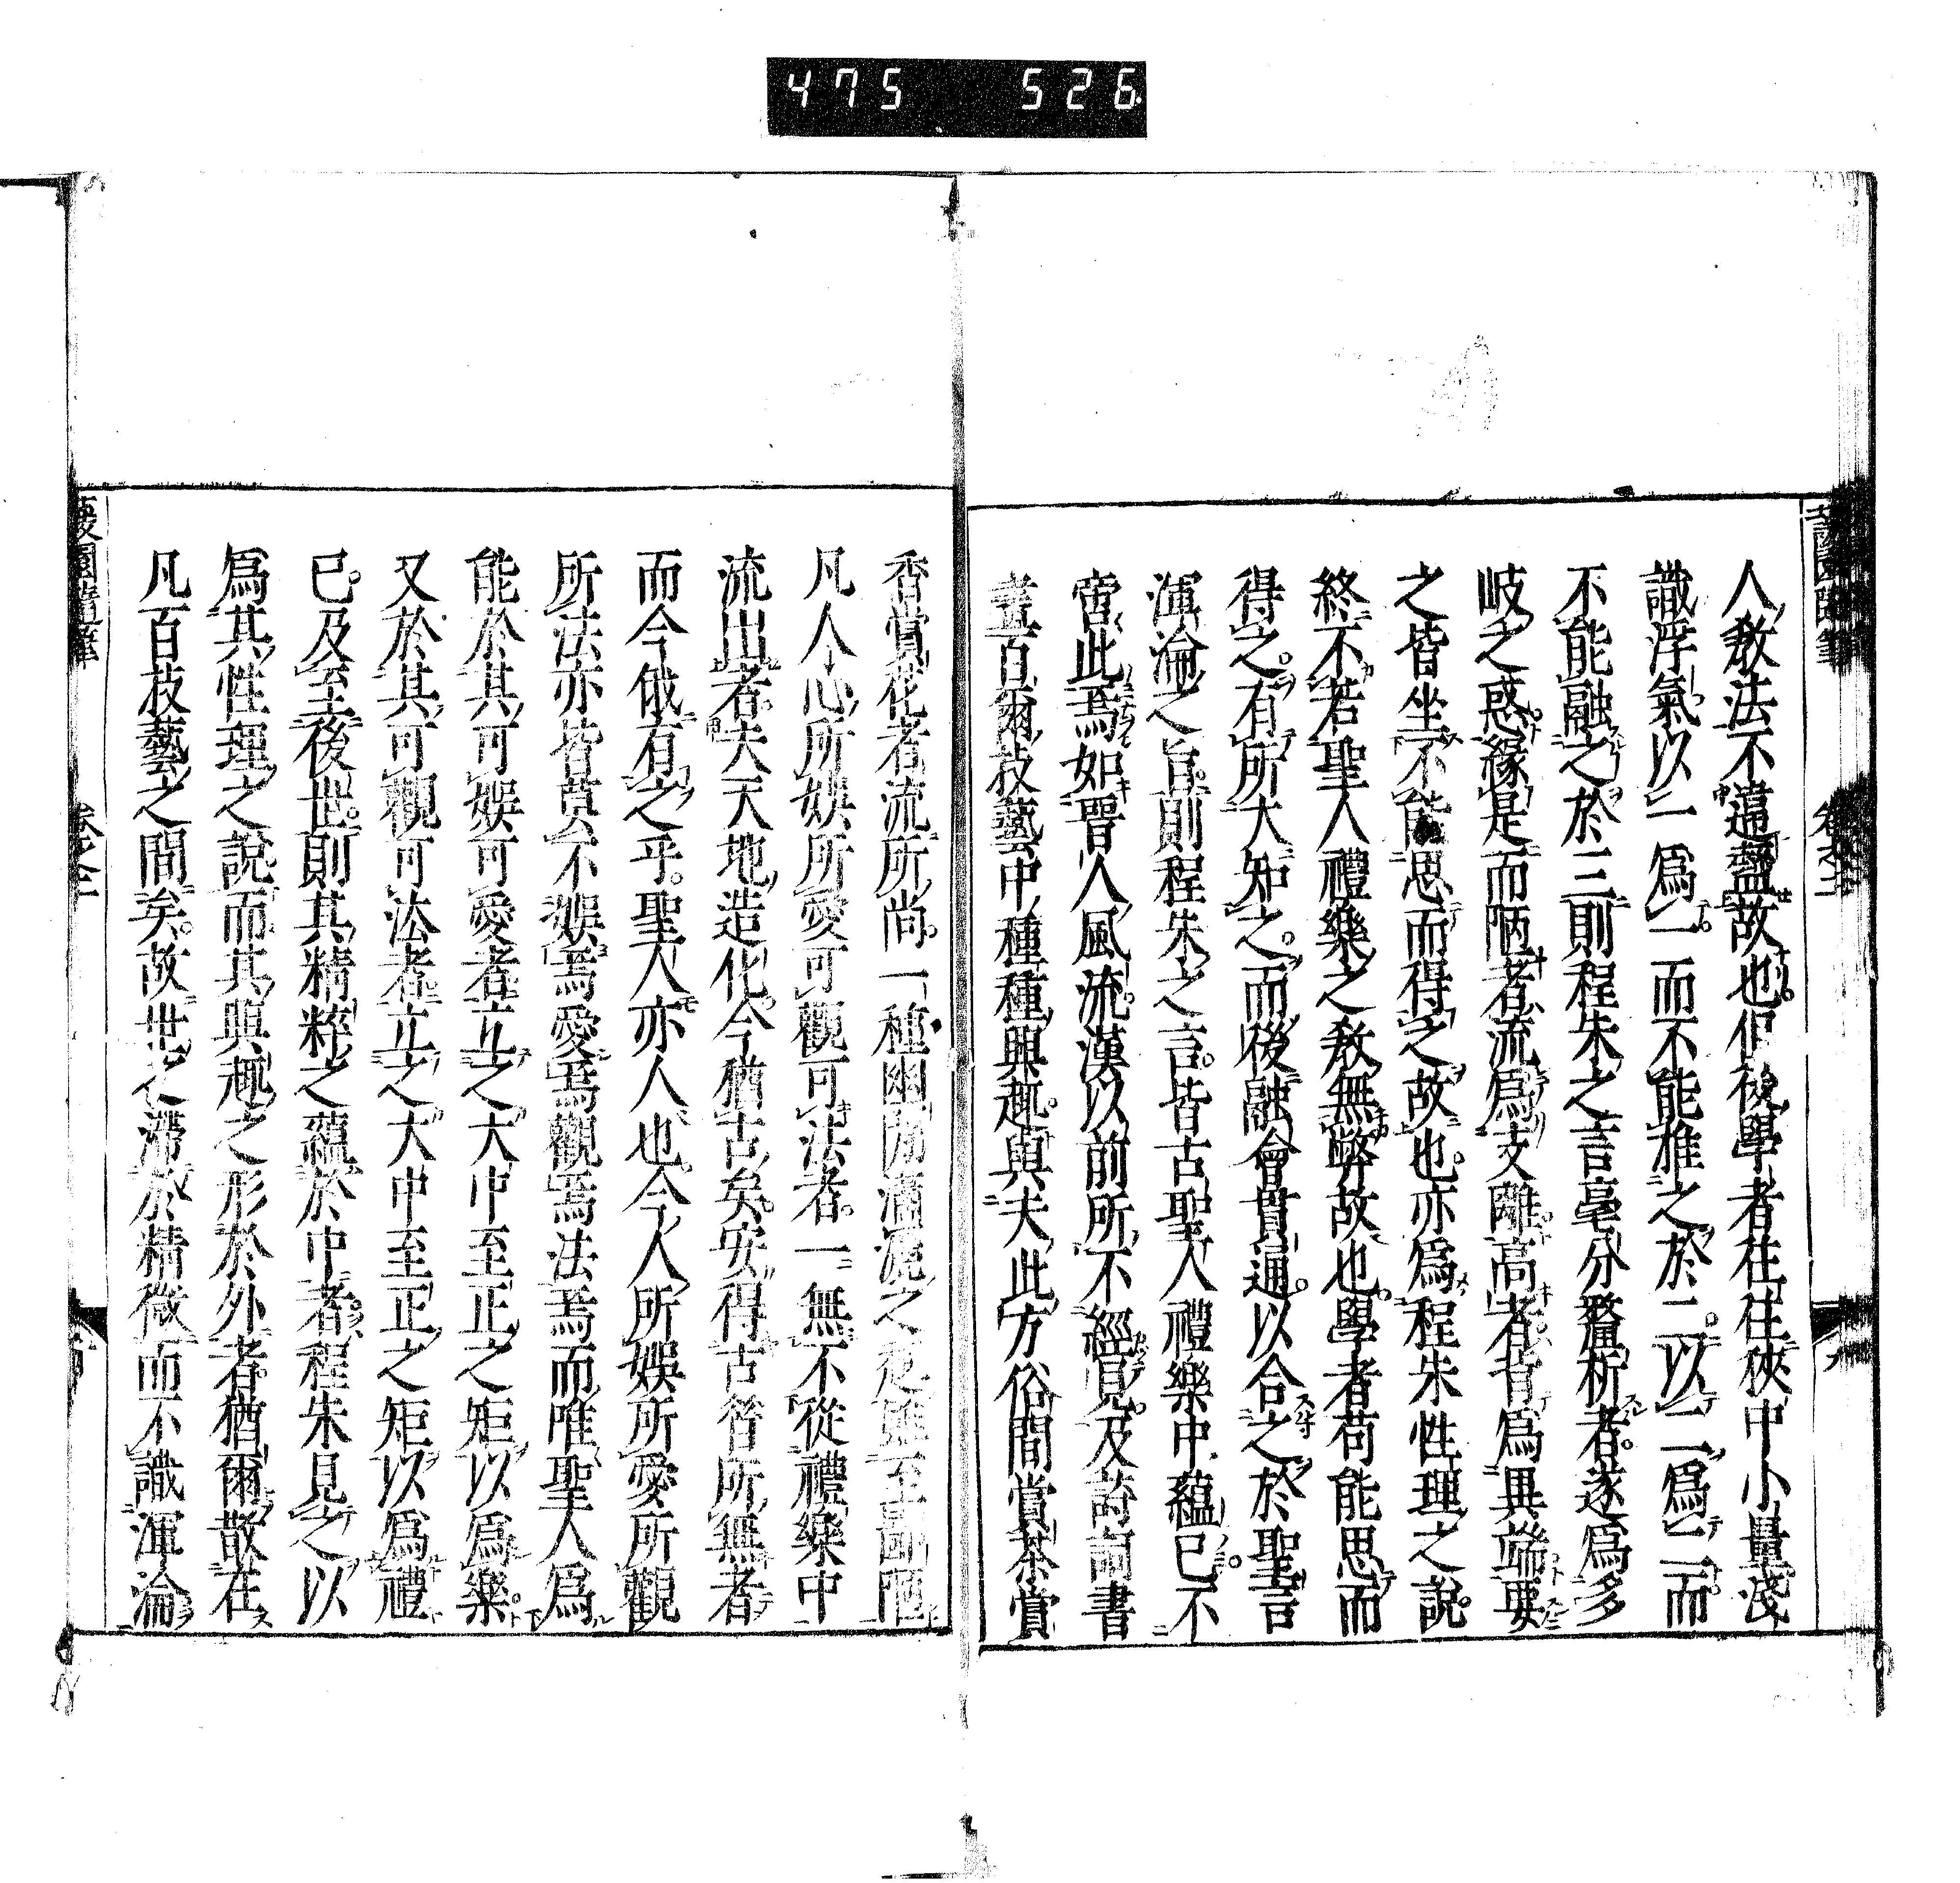 475 526
人敎法不違盭故也但後學者往往狹中小量淺
識浮氣以一爲一而不能推之於二以二爲二而
不能融之於三則程朱之言毫分釐析者遂爲多
岐之惑緣是而陋者流爲支離高者背爲異端要
之皆坐不能思而得之故也亦爲程朱性理之說
終不若聖人禮樂之敎無弊故也學者苟能思而
得之有所大知之而後融會貫通以合之於聖言
渾淪之旨則程朱之言皆古聖人禮樂中蘊已不
啻此焉如晉人風流漢以前所不經見及詩詞書
畫百爾技藝中種種興趣與夫此方俗間賞茶賞
香賞花者流所尚一種幽閒瀟洒之趣雖至鄙陋
凡人心所娛所愛可觀可法者一無不從禮樂中
流出者夫天地造化今猶古矣安得古昔所無者
而今俄有之乎聖人亦人也今人所娛所愛所觀
所法亦皆莫不娛焉愛焉觀焉法焉而唯聖人爲
能於其可娛可愛者立之大中至正之矩以爲樂
又於其可觀可法者立之大中至正之矩以爲禮
已及至後世則其精粹之蘊於中者程朱見之以
爲其性理之說而其興趣之形於外者猶爾散在
凡百技藝之間矣故世之滯於精微而不識渾淪
蘐園隨筆 卷之二